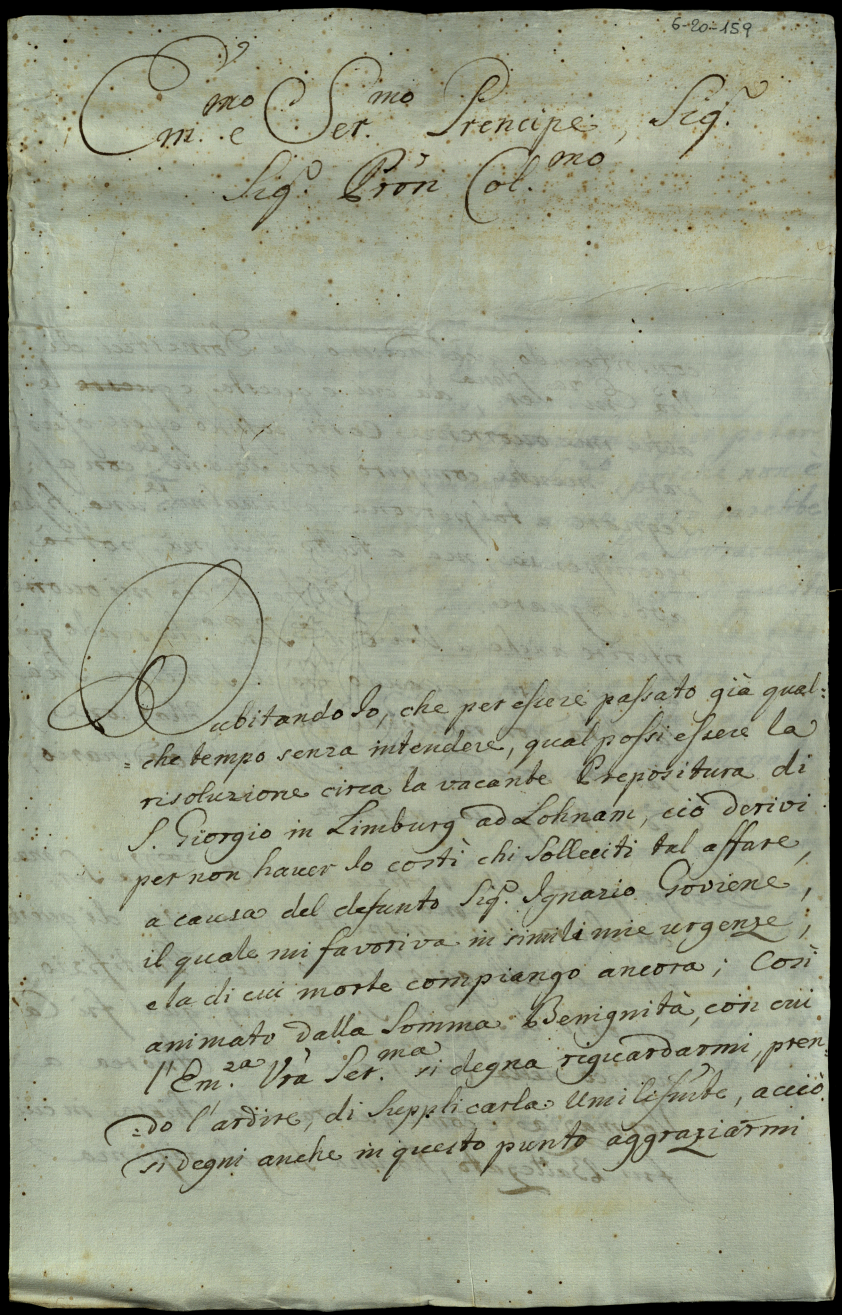 6-20-159
Em.mo e Ser.mo Prencipe, Sig.r
Sig.r Pron Col.mo
Dubitando Io, che per essere passato già qual=
=che tempo senza intendere, qual possi essere la
risoluzione circa la vacante Prepositura di
S. Giorgio in Limburg ad Lohnam, ciò derivi
per non haver Io costì chi solleciti tal affare,
a causa del defunto Sig.r Ignazio Goviene,
il quale mi favoriva in simili mie urgenze;
e la di cui morte compiango ancora; Così
animato dalla somma Benignità, con cui
l'Em.za Vrà Ser.ma si degna riguardarmi, pren=
=do l'ardire, di supplicarla Umilissmte, acciò
si degni anche in questo punto aggraziarmi